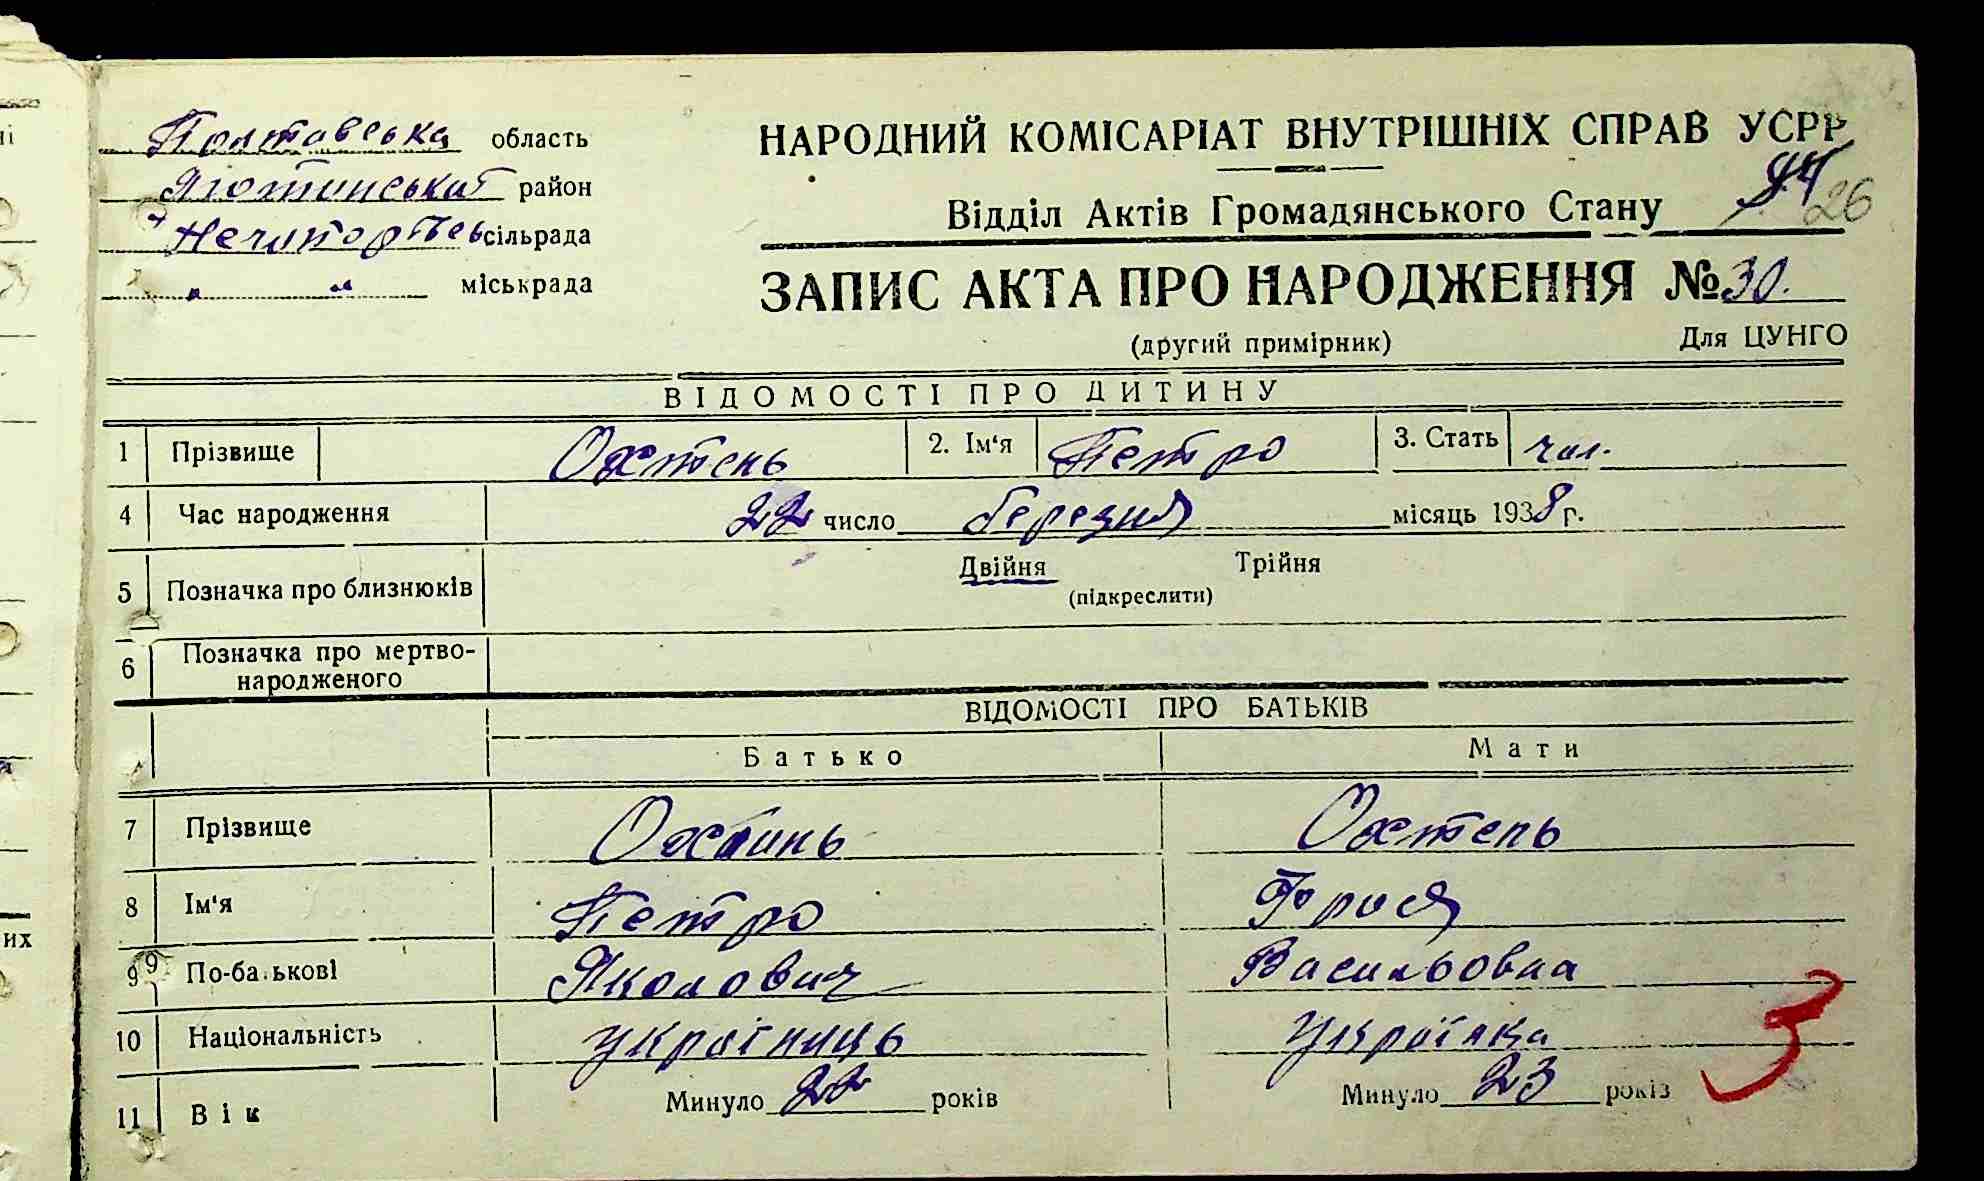 Полтавська область
НАРОДНИЙ КОМІСАРІАТ ВНУТРІШНІХ СПРАВ УСРР
район
26
Відділ Актів Громадянського Стану
сільрада
" " міськрада
ЗАПИС АКТА ПРО НАРОДЖЕННЯ № 30.
(другий примірник) Для ЦУНГО
ВІДОМОСТІ ПРО ДИТИНУ
1 Прізвище Охтень 2. Ім'я Петро 3. Стать чол.
4 Час народження 22 число березня місяць 1938 г.
5 Позначка про близнюків Двійня Трійня
(підкреслити)
6 Позначка про мертво-
народженого
ВІДОМОСТІ ПРО БАТЬКІВ
Батько Мати
7 Прізвище Охтинь Охтень
8 Ім'я Петро
9 9 По-батькові Васильовна
10 Національність україниць українка
11 Вік Минуло 22 років Минуло 23 років
3